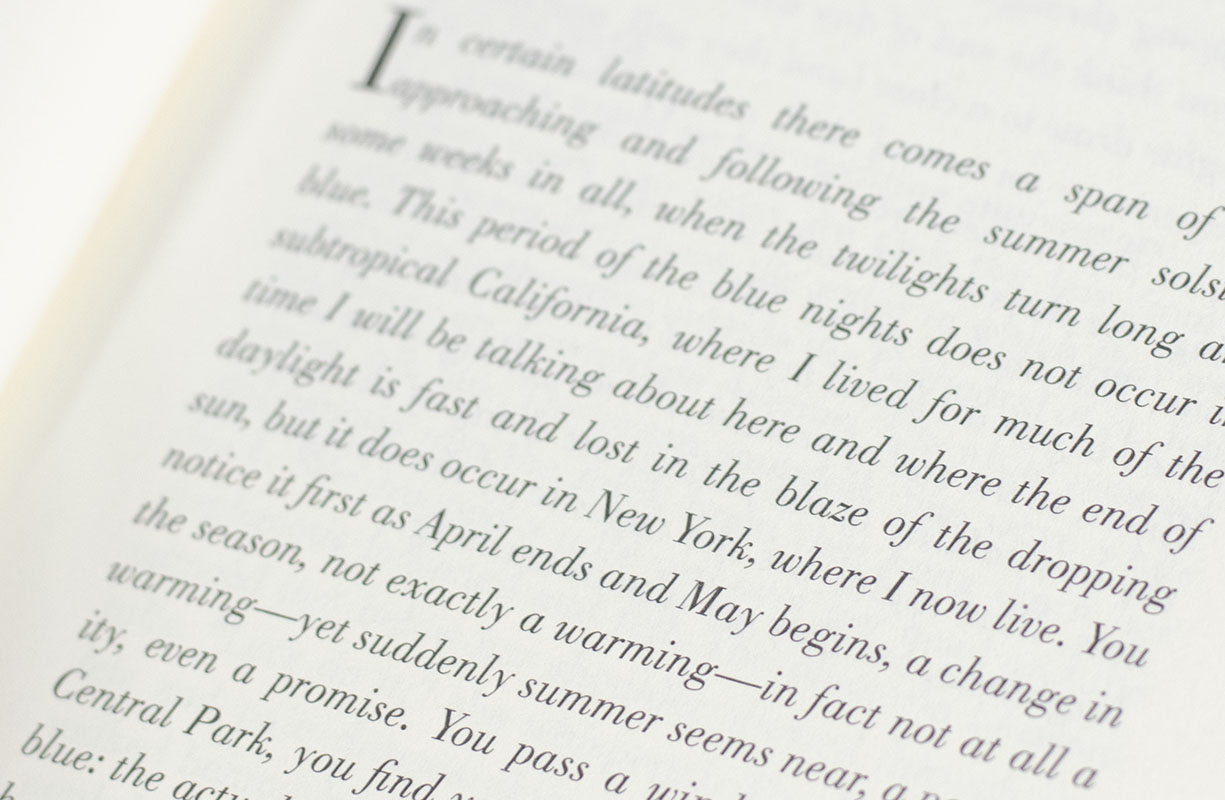 In certain latitudes there comes a span of
approaching and following the summer
some weeks in all, when the twilights turn long
blue. This period of the blue nights does not occur
subtropical California, where I lived for much of the
time I will be talking about here and where the end of
daylight is fast and lost in the blaze of the dropping
sun, but it does occur in New York, where I now live. You
notice it first as April ends and May begins, a change in
the season, not exactly a warming—in fact not at all a
warming—yet suddenly summer seems near, a
ity, even a promise. You pass a
Central Park, you find
blue: the